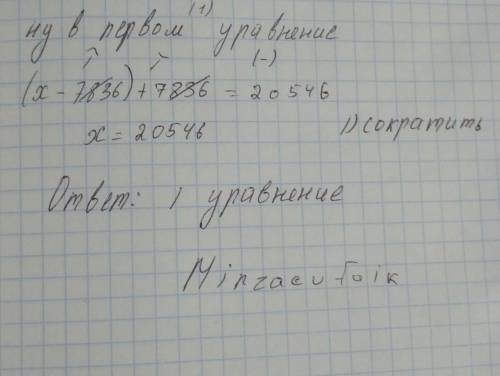 (1)
ну в первом уравнение
(-)
(x - 7836) + 7836 = 20546
x = 20546 1) сократить
Ответ: 1 уравнение